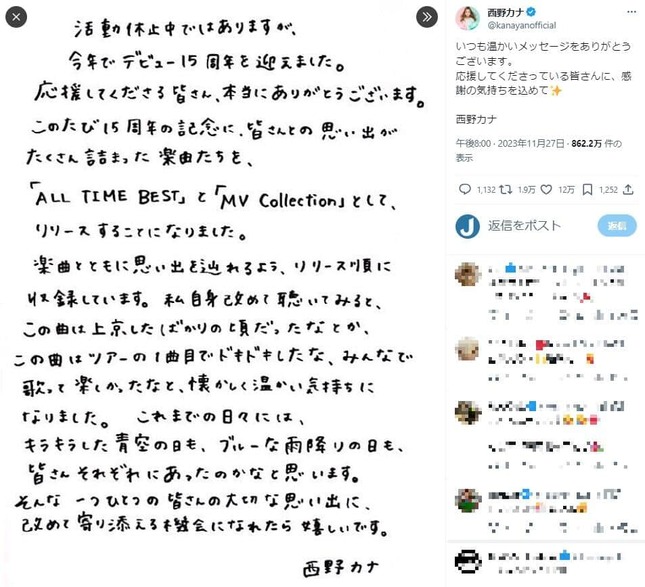 活動休止中ではありますが、
今年でデビュー15周年を迎えました。
応援してくださる皆さん、本当にありがとうございます。
このたび15周年の記念に、皆さんとの思い出が
たくさん詰まった楽曲たちを、
「ALL TIME BEST」と「MV Collection」として、
リリースすることになりました。
楽曲とともに思い出を辿れるよう、リリース順に
収録しています。私自身改めて聴いてみると、
この曲は上京したばかりの頃だったなとか、
この曲はツアーの1曲目でドキドキしたな、みんなで
歌って楽しかったなと、懐かしく温かい気持ちに
なりました。 これまでの日々には、
キラキラした青空の日も、ブルーな雨降りの日も、
皆さんそれぞれにあったのかなと思います。
そんな一つひとつの皆さんの大切な思い出に、
改めて寄り添える機会になれたら嬉しいです。
西野カナ
西野カナ
@kanayanofficial
いつも温かいメッセージをありがとう
ございます。
応援してくださっている皆さんに、感
謝の気持ちを込めて✨
西野カナ
午後8:00 · 2023年11月27日 · 862.2万 件の
表示
1,132 1.9万 12万 1,252
J
返信をポスト
返信